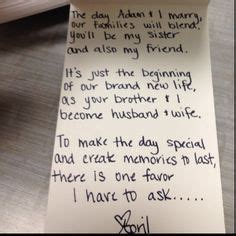 The day Adam & I marry,
our families will blend,
you'll be my sister
and also my friend.
It's just the beginning
of our brand new life,
as your brother & I
become husband & wife.
To make the day special
and create memories to last,
there is one favor
I have to ask.....
April